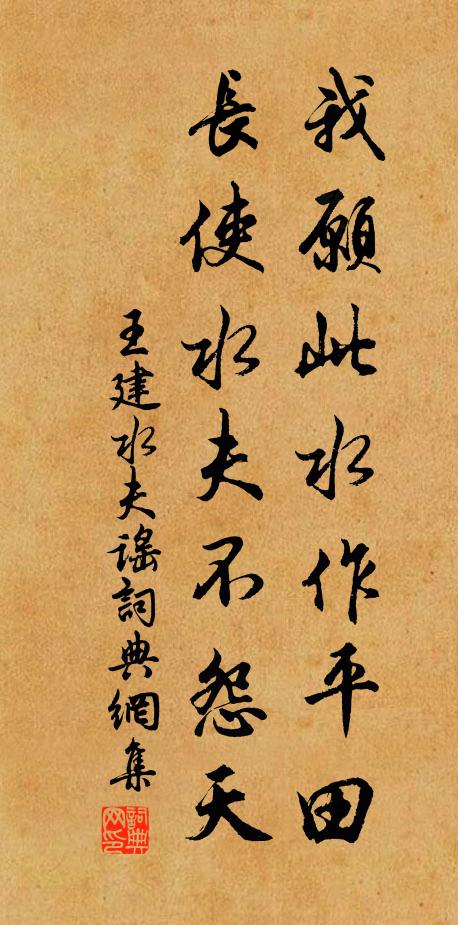 我願此水作平田
長使水夫不怨天
王建水夫謠詞典網集
詞典網印